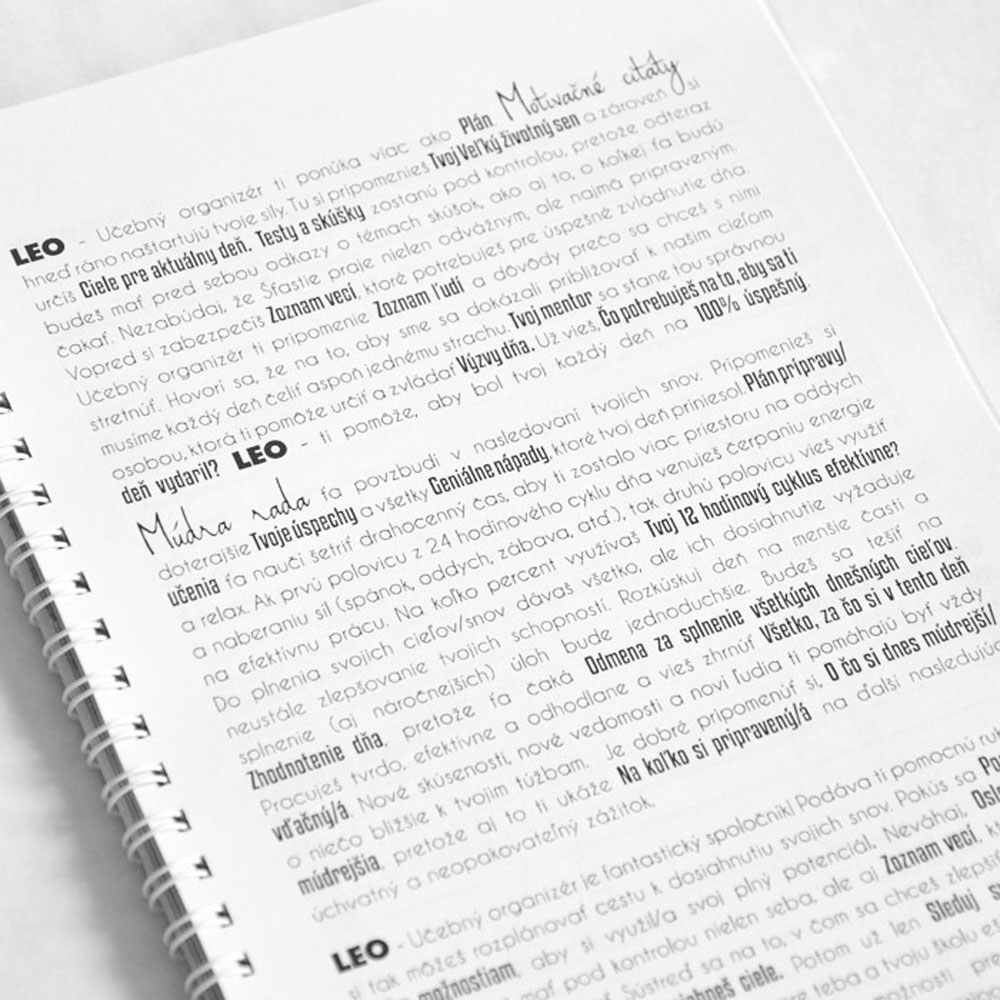 LEO - Učebný organizér ti ponúka viac ako Plán Motivačné citáty
hneď ráno naštartujú tvoje sily. Tu si pripomenieš Tvoj Veľký životný sen a zároveň si
určíš Ciele pre aktuálny deň. Testy a skúšky zostanú pod kontrolou, pretože odteraz
budeš mať pred sebou odkazy o témach skúšok, ako aj to, o koľkej ťa budú
čakať. Nezabúdaj, že Šťastie praje nielen odvážnym, ale najmä pripraveným.
Vopred si zabezpečíš Zoznam vecí, ktoré potrebuješ pre úspešné zvládnutie dňa.
Učebný organizér ti pripomenie Zoznam ľudí a dôvody prečo sa chceš s nimi
stretnúť. Hovorí sa, že na to, aby sme sa dokázali približovať k našim cieľom
musíme každý deň čeliť aspoň jednému strachu. Tvoj mentor sa stane tou správnou
osobou, ktorá ti pomôže určiť a zvládať Výzvy dňa. Už vieš, Čo potrebuješ na to, aby sa ti
deň vydaril? LEO - ti pomôže, aby bol tvoj každý deň na 100% úspešný.
Múdra rada ťa povzbudí v nasledovaní tvojich snov. Pripomenieš si
doterajšie Tvoje úspechy a všetky Geniálne nápady, ktoré tvoj deň priniesol. Plán prípravy/
učenia ťa naučí šetriť drahocenný čas, aby ti zostalo viac priestoru na oddych
a relax. Ak prvú polovicu z 24 hodinového cyklu dňa venuješ čerpaniu energie
a naberaniu síl (spánok, oddych, zábava, atď.), tak druhú polovicu vieš využiť
na efektívnu prácu. Na koľko percent využívaš Tvoj 12 hodinový cyklus efektívne?
Do plnenia svojich cieľov/snov dávaš všetko, ale ich dosiahnutie vyžaduje
neustále zlepšovanie tvojich schopností. Rozkúskuj deň na menšie časti a
splnenie (aj náročnejších) úloh bude jednoduchšie. Budeš sa tešiť na
Zhodnotenie dňa, pretože ťa čaká Odmena za splnenie všetkých dnešných cieľov.
Pracuješ tvrdo, efektívne a odhodlane a vieš zhrnúť Všetko, za čo si v tento deň
vďačný/á. Nové skúsenosti, nové vedomosti a noví ľudia ti pomáhajú byť vždy
o niečo bližšie k tvojim túžbam. Je dobré pripomenúť si, O čo si dnes múdrejší/
múdrejšia, pretože aj to ti ukáže Na koľko si pripravený/á na ďalší nasledujúc
úchvatný a neopakovateľný zážitok.
LEO - Učebný organizér je fantastický spoločník! Podáva ti pomocnú ru
si tak môžeš rozplánovať cestu k dosiahnutiu svojich snov. Pokús sa
možnostiam, aby si využil/a svoj plný potenciál. Neváhaj,
mať pod kontrolou nielen seba, ale aj Zoznam vecí,
ciele. Sústreď sa na to, v čom sa chceš
Potom už len Sleduj
teba a tvoju školu
možností